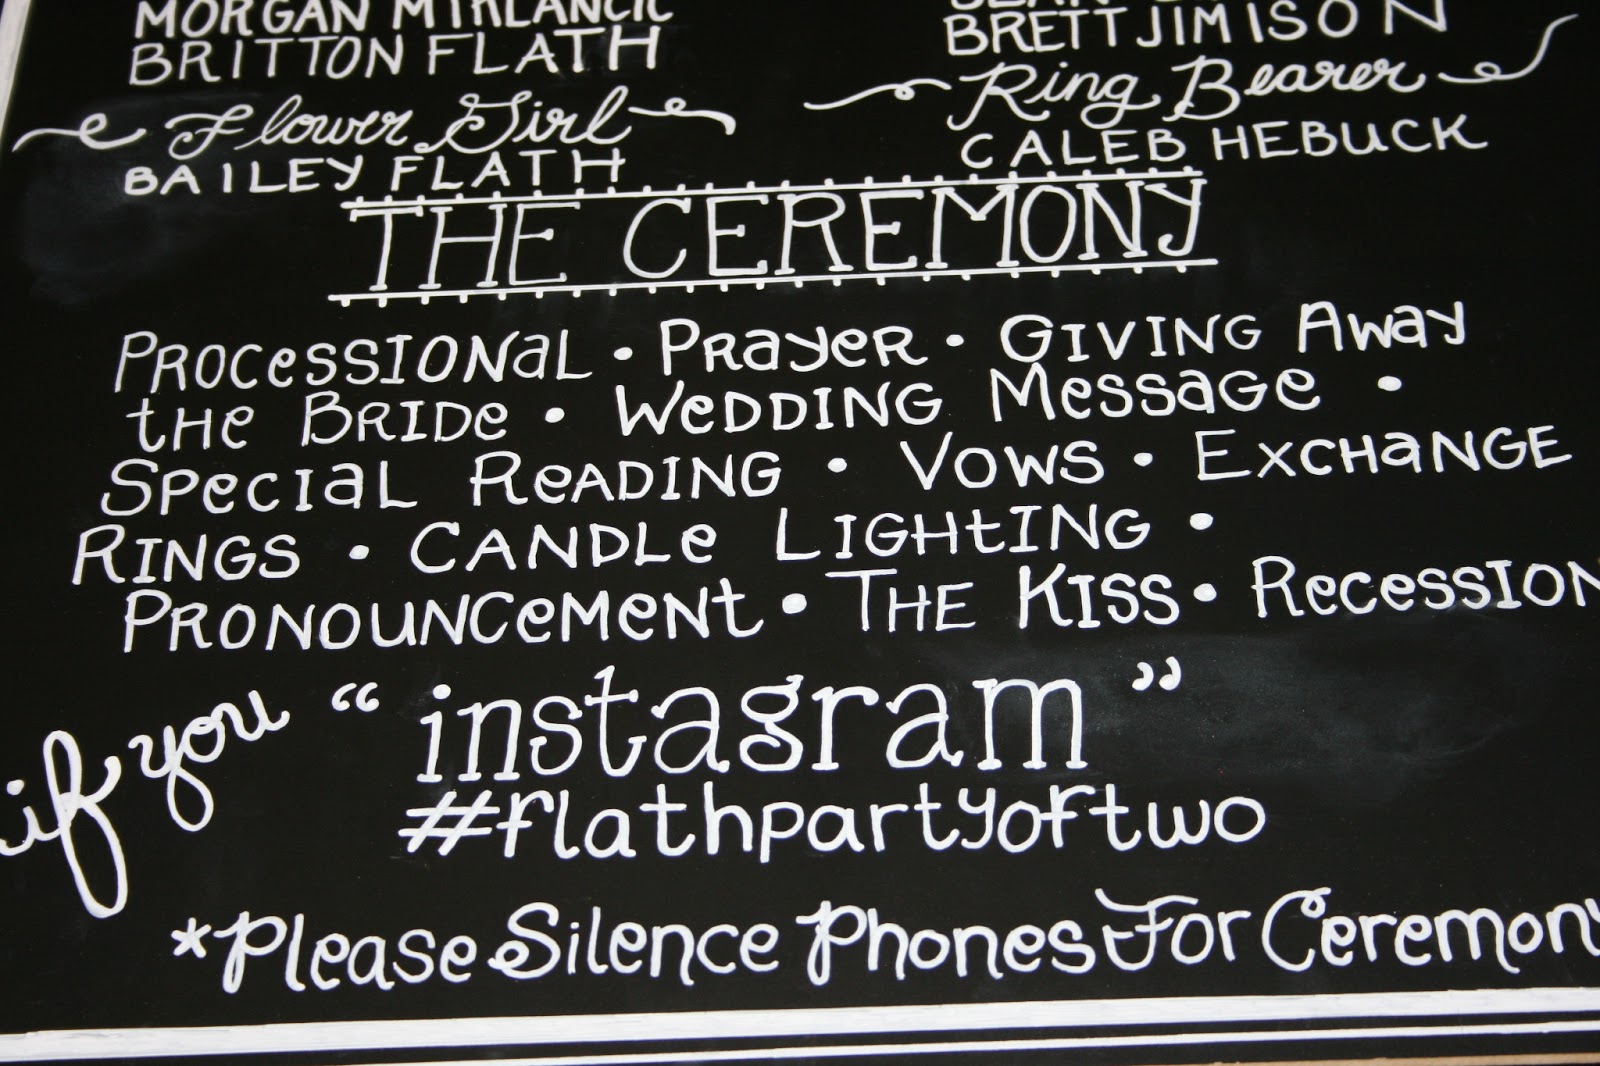 MORGAN
BRITTON FLATH
BRETT JIMISON
Flower Girl
BAILEY FLATH
Ring Bearer
CALEB HEBUCK
THE CEREMONY
PROCESSIONAL • PRAYER • GIVING AWAY
THE BRIDE • WEDDING MESSAGE •
SPECIAL READING • VOWS • EXCHANGE
RINGS • CANDLE LIGHTING •
PRONOUNCEMENT • THE KISS • RECESSION
if you “instagram”
#flathpartyoftwo
*Please Silence Phones For Ceremony